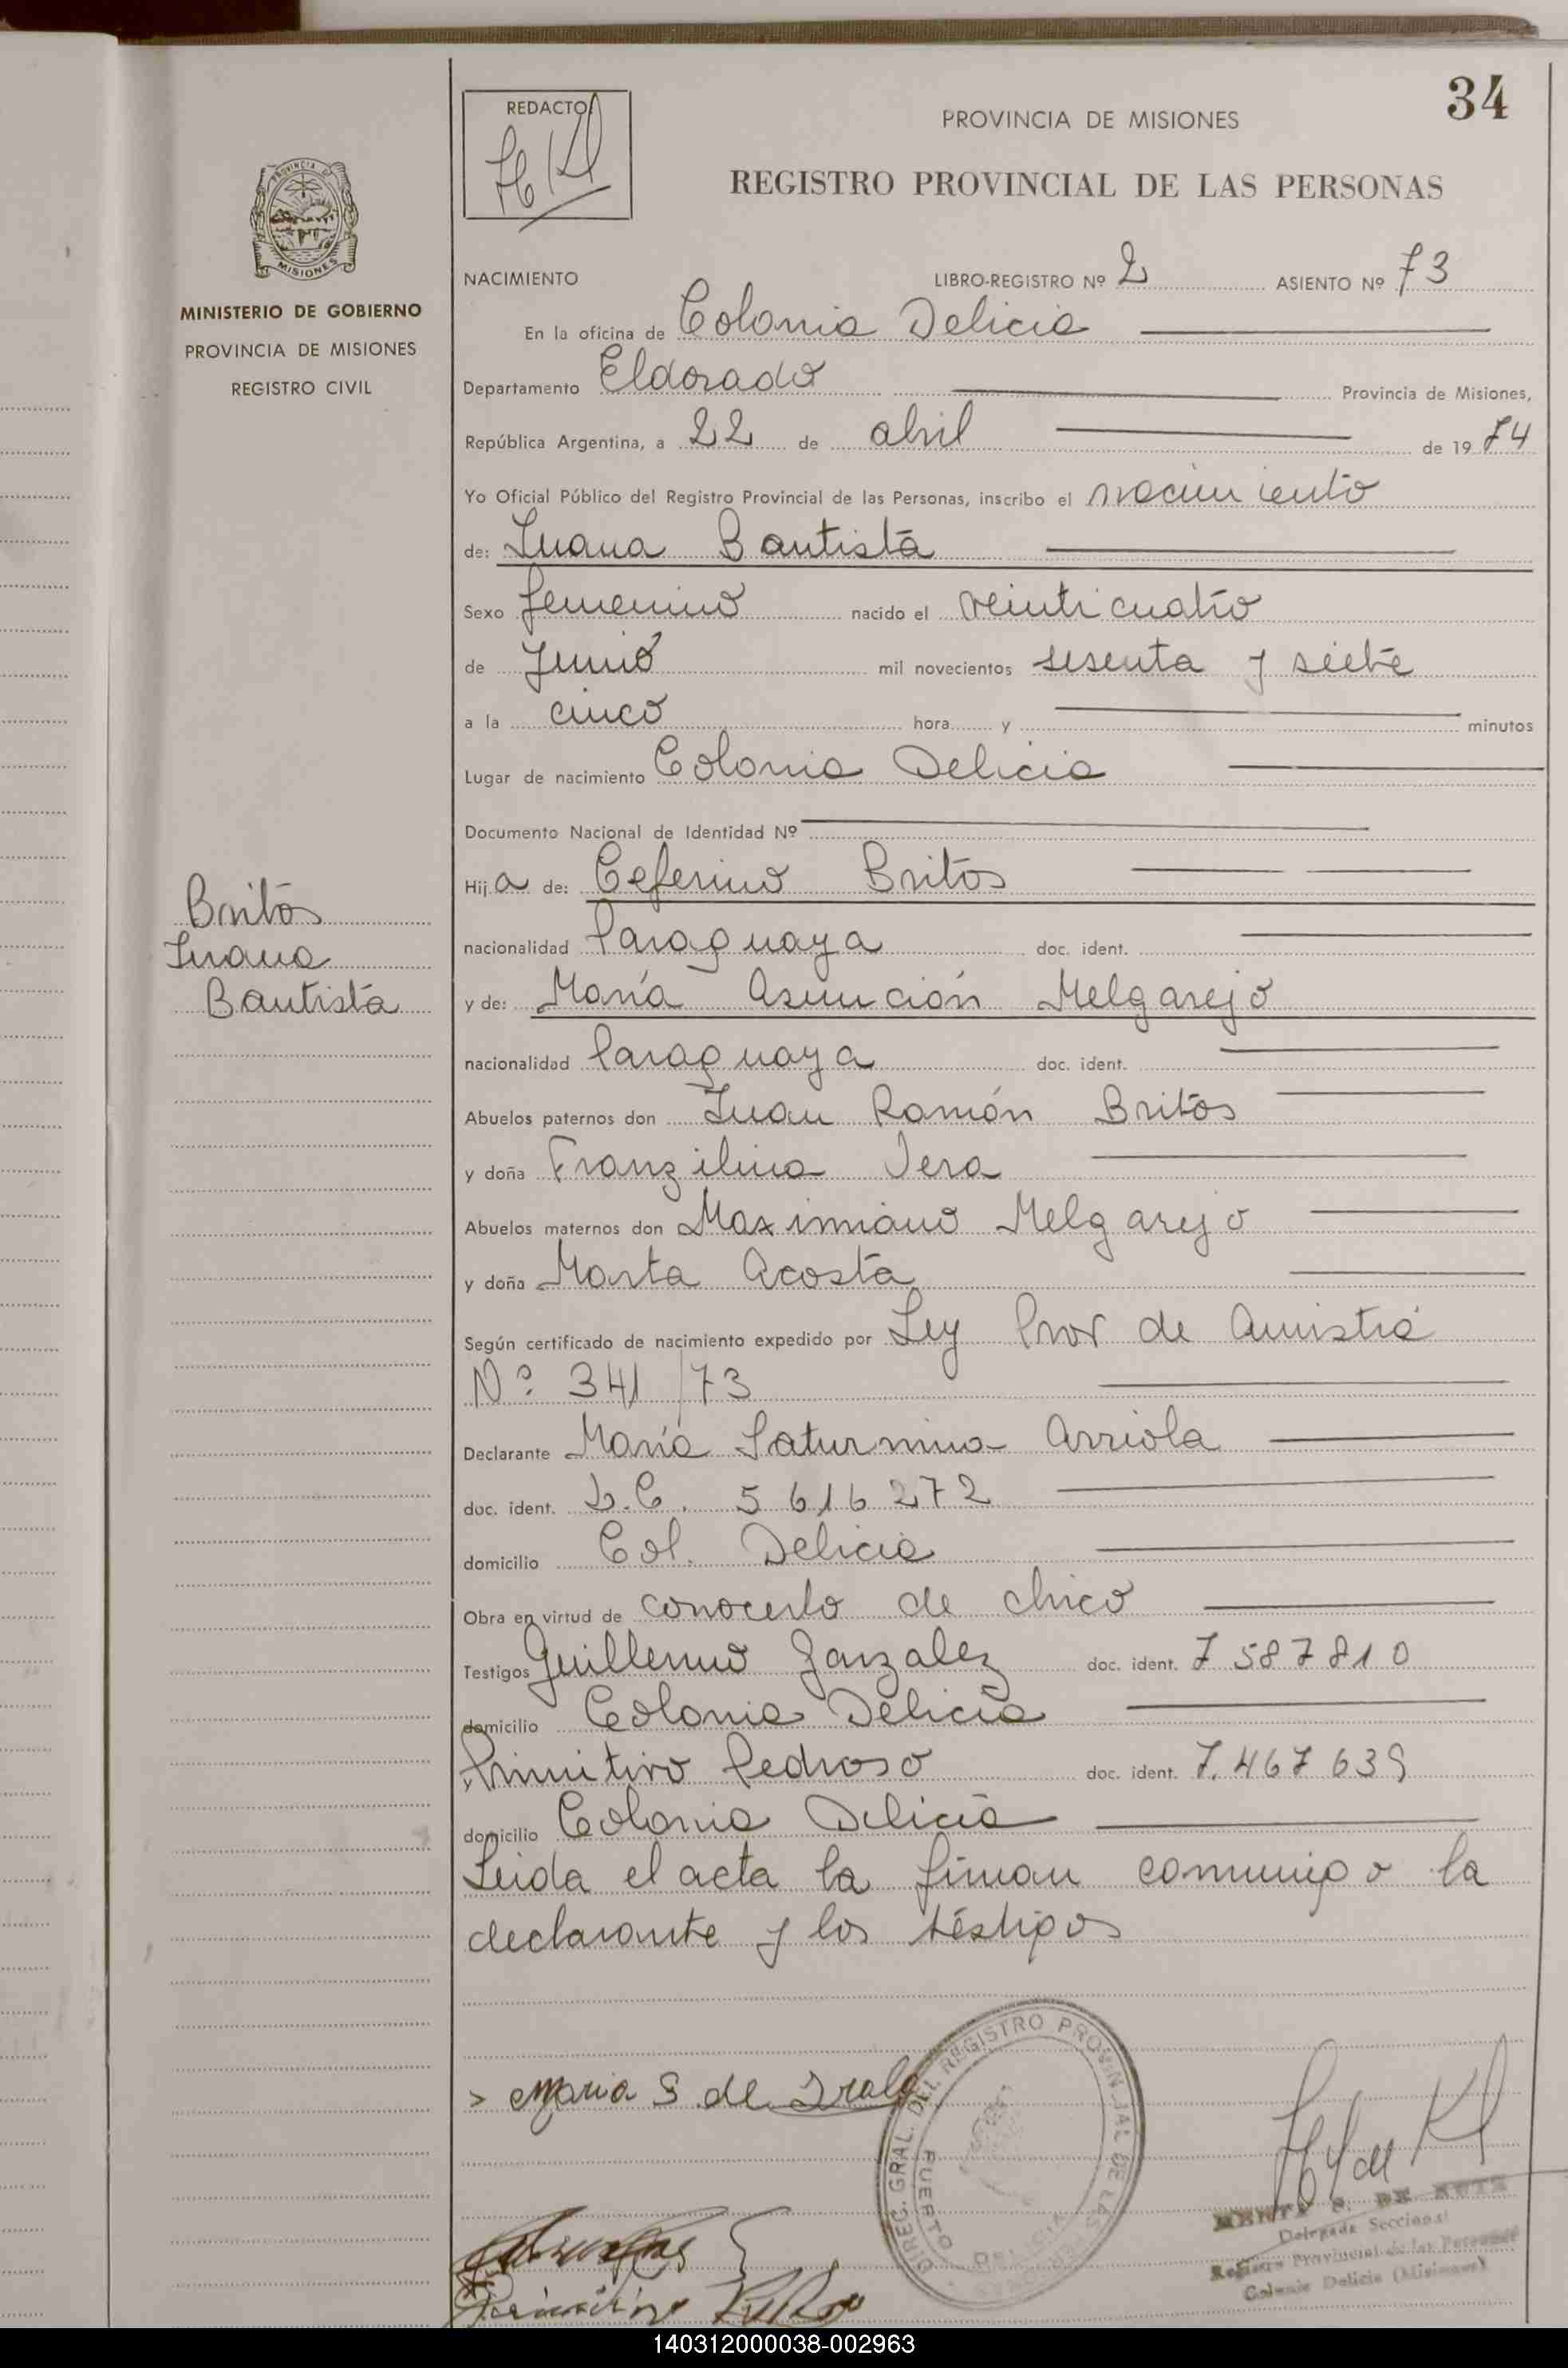 34
REDACTOR
PROVINCIA DE MISIONES
REGISTRO PROVINCIAL DE LAS PERSONAS
PROVINCIA DE
MISIONES
MINISTERIO DE GOBIERNO
PROVINCIA DE MISIONES
REGISTRO CIVIL
NACIMIENTO LIBRO-REGISTRO Nº 2 ASIENTO Nº 73
En la oficina de Colonia Delicia
Departamento Eldorado Provincia de Misiones,
República Argentina, a 22 de abril de 1974
Yo Oficial Público del Registro Provincial de las Personas, inscribo el nacimiento
de: Juana Bautista
Sexo femenino nacido el veinticuatro
de Junio mil novecientos sesenta y siete
a la cinco hora y minutos
Lugar de nacimiento Colonia Delicia
Documento Nacional de Identidad Nº
Hija de: Ceferino Britos
Britos
Juana
Bautista
nacionalidad Paraguaya doc. ident.
y de: María Asunción Melgarejo
nacionalidad Paraguaya doc. ident.
Abuelos paternos don Juan Ramón Britos
y doña Franzilina Vera
Abuelos maternos don Maximiano Melgarejo
y doña Marta Acosta
Según certificado de nacimiento expedido por Ley Prov de Amistia
Nº 341/73
Declarante María Saturnina Arriola
doc. ident. L.C. 5616272
domicilio Col. Delicia
Obra en virtud de conocerlo de chico
Testigos Guillermo Gonzalez doc. ident. 7587810
domicilio Colonia Delicia
Primitivo Pedroso doc. ident. 7.467639
domicilio Colonia Delicia
Leida el acta la firman conmigo la
declarante y los téstigos
Maria S de Irala
DIREC. GRAL. DEL REGISTRO PROVINCIAL DE LAS PERSONAS
PUERTO DELICIA
Delegada Seccional
Registro Provincial de las Personas
Colonia Delicia (Misiones)
140312000038-002963